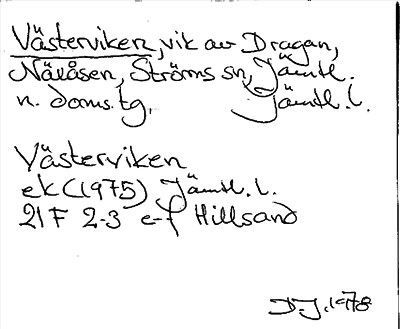 Västerviken, vik av Dragan,
Nävåsen, Ströms sn, Jämtl.
n. doms.tg. Jämtl. l.
Västerviken
ek (1975) Jämtl. l.
21F 2-3 e-f Hillsand
D.J. 1978